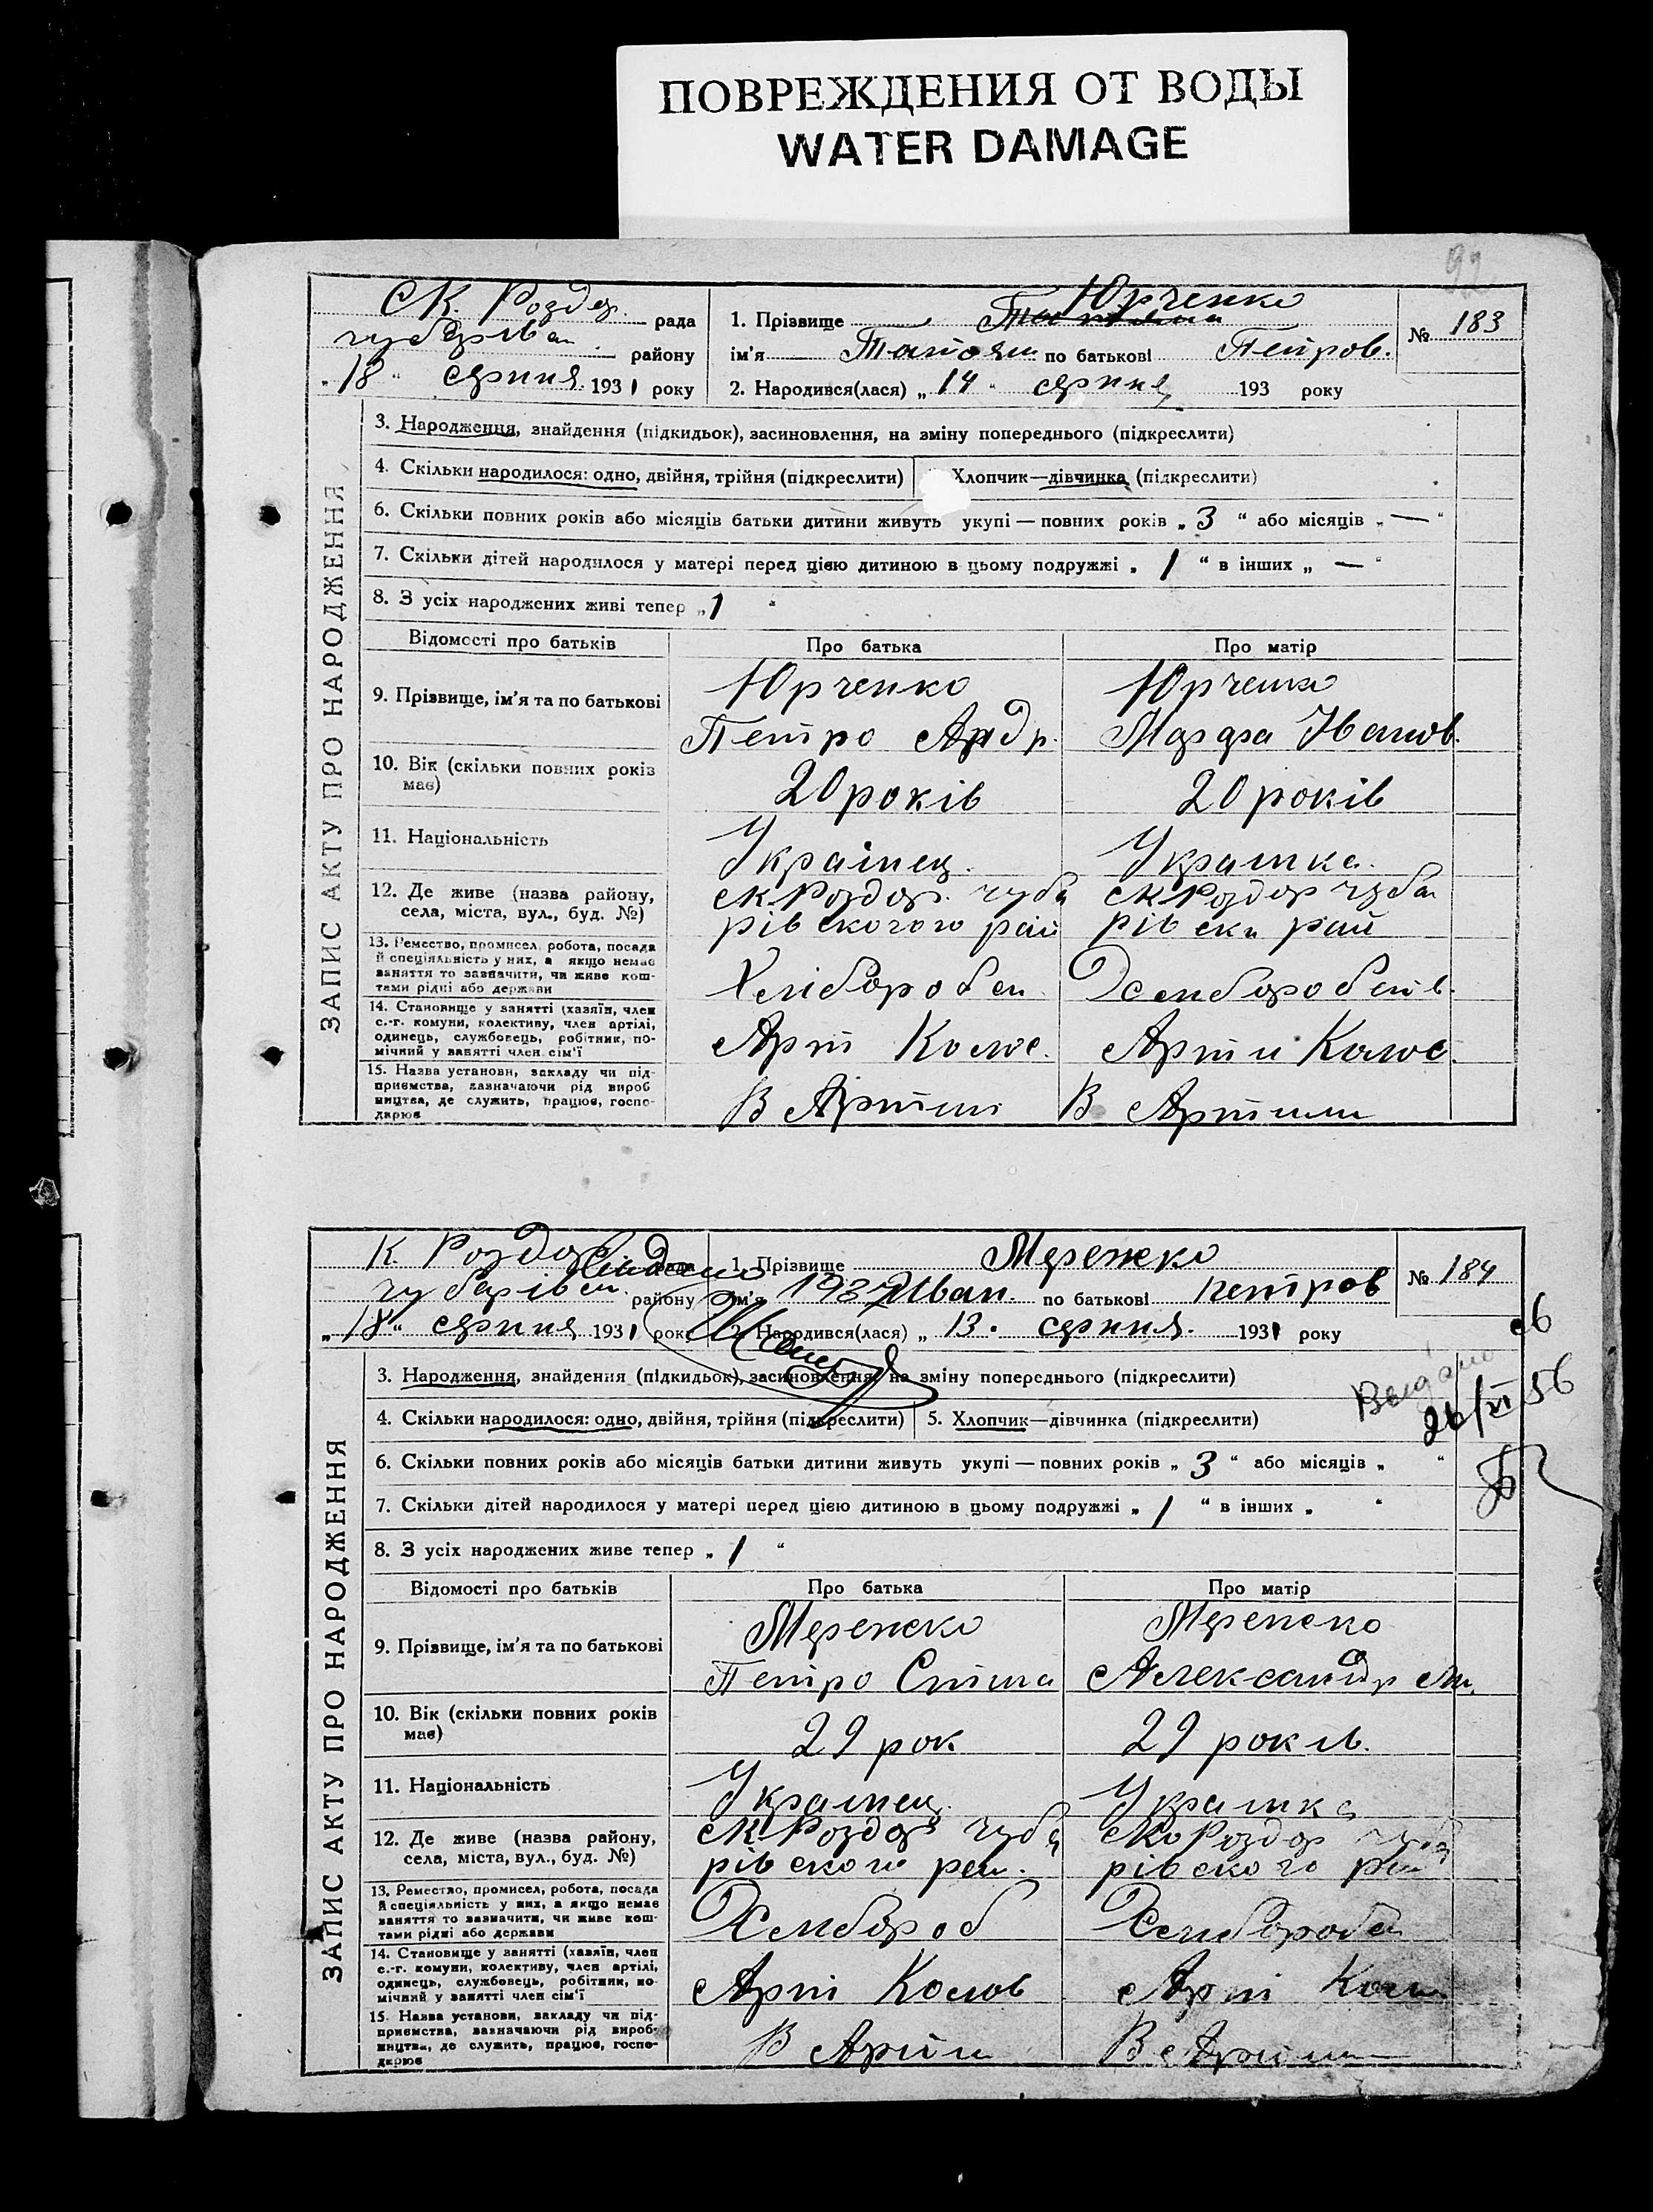 ПОВРЕЖДЕНИЯ ОТ ВОДЫ
WATER DAMAGE
92
СК. Роздор. рада
чубарівськ району
„18“ серпня 1931 року
1. Прізвище Юрченко
ім'я Татоян по батькові Петров.
2. Народився(лася) „14“ серпня 193 року
№ 183
ЗАПИС АКТУ ПРО НАРОДЖЕННЯ
3. Народження, знайдення (підкидьок), засиновлення, на зміну попереднього (підкреслити)
4. Скільки народилося: одно, двійня, трійня (підкреслити)
Хлопчик—дівчинка (підкреслити)
6. Скільки повних років або місяців батьки дитини живуть укупі — повних років „3“ або місяців „—“
7. Скільки дітей народилося у матері перед цією дитиною в цьому подружжі „1“ в інших „—“
8. З усіх народжених живі тепер „1“
Відомості про батьків Про батька Про матір
9. Прізвище, ім'я та по батькові
Юрченко
Петро Андр.
Юрченко
Марфа Иванов.
10. Вік (скільки повних років має)
20 років
20 років
11. Національність
Украінец.
Украинка.
12. Де живе (назва району,
села, міста, вул., буд. №)
СК Роздор. чуба
рівського рай
СК Роздор чуба
рівськ рай
13. Ремество, промисел, робота, посада
й спеціяльність у них, а якщо немає
заняття то зазначити, чи живе кош-
тами рідні або держави
Хлібороб
14. Становище у занятті (хазяїн, член
с.-г. комуни, колективу, член артілі,
одинець, службовець, робітник, по-
мічний у занятті член сім'ї
Арт Колос.
Арти Колос.
15. Назва установи, закладу чи під-
приємства, зазначаючи рід вироб
ництва, де служить, працює, госпо-
дарює
В Артілі
В Артили
К Роздор рада
чубарівськ. району
„18“ серпня 1931 року
1. Прізвище Мереженко
ім'я Иван. по батькові петров
1937
2. Народився(лася) „13. серпня. 1931 року
№ 184
Видано
26/XI 56
ЗАПИС АКТУ ПРО НАРОДЖЕННЯ
3. Народження, знайдення (підкидьок), засиновлення, на зміну попереднього (підкреслити)
4. Скільки народилося: одно, двійня, трійня (підкреслити)
5. Хлопчик—дівчинка (підкреслити)
6. Скільки повних років або місяців батьки дитини живуть укупі — повних років „3“ або місяців „ “
7. Скільки дітей народилося у матері перед цією дитиною в цьому подружжі „1“ в інших „ “
8. З усіх народжених живе тепер „1“
Відомості про батьків Про батька Про матір
9. Прізвище, ім'я та по батькові
Петро
Александр
10. Вік (скільки повних років має)
29 рок
29 років.
11. Національність
Украинец.
Украинка
12. Де живе (назва району,
села, міста, вул., буд. №)
СК Роздор чуба
рівского рай.
Роздор чуба
рівского рай
13. Ремество, промисел, робота, посада
й спеціяльність у них, а якщо немає
заняття то зазначити, чи живе кош-
тами рідні або держави
Хлебороб
14. Становище у занятті (хазяїн, член
с.-г. комуни, колективу, член артілі,
одинець, службовець, робітник, по-
мічний у занятті член сім'ї
Арті Колов
Арті
15. Назва установи, закладу чи під-
приємства, зазначаючи рід вироб-
ництва, де служить, працює, госпо-
дарює
В Артіли
В Артили